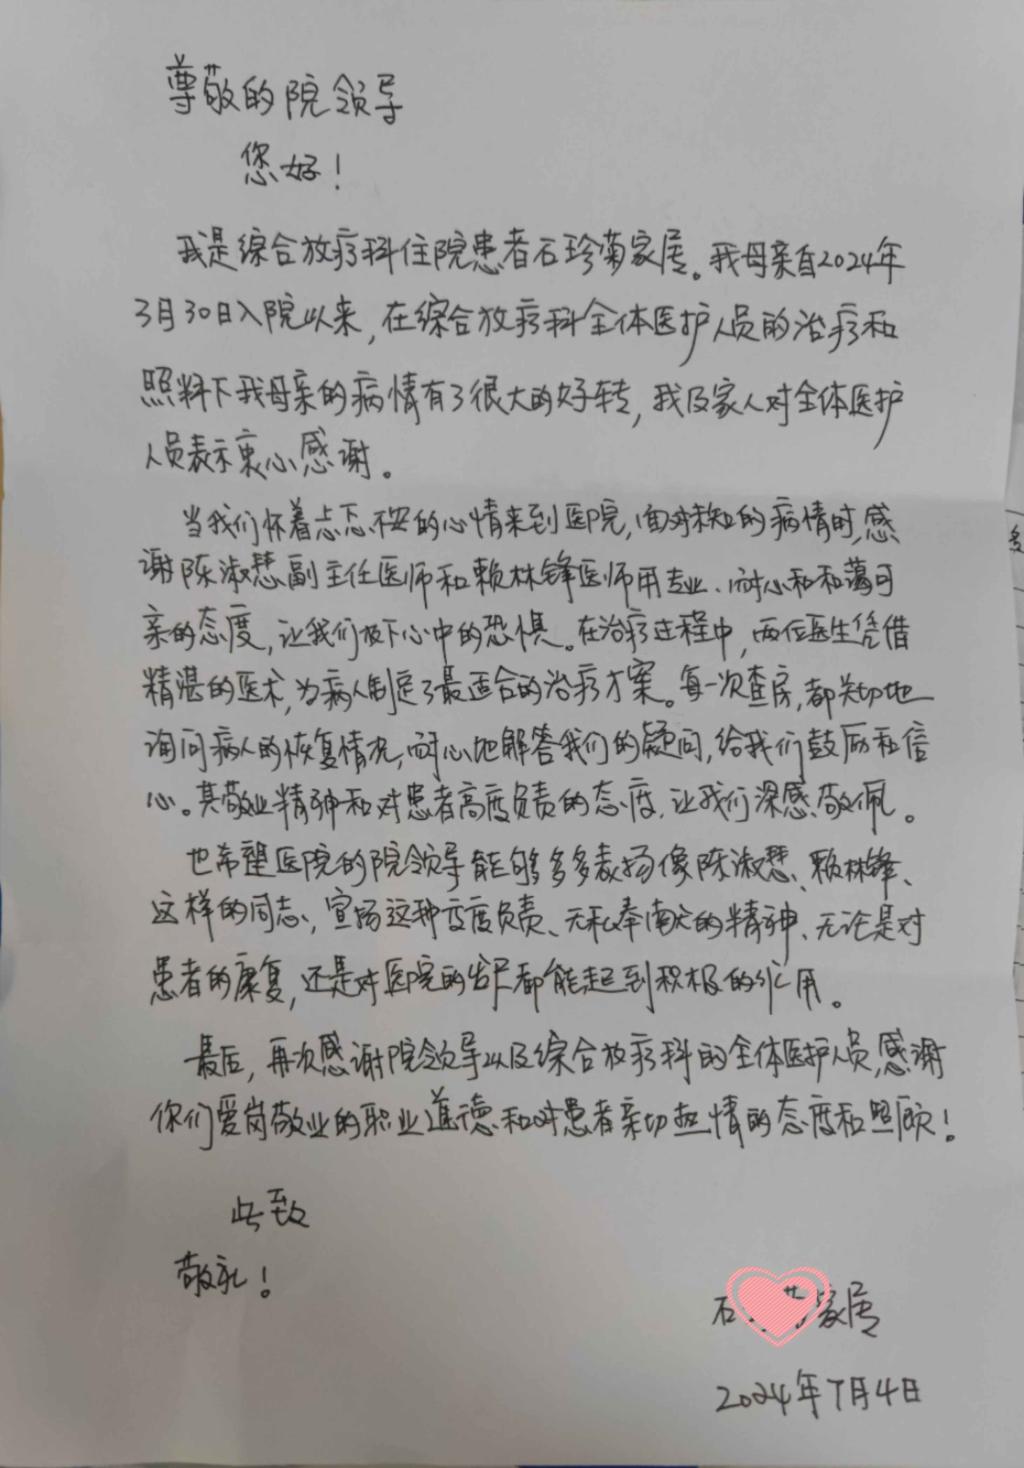 尊敬的院领导
您好!
我是综合放疗科住院患者石珍菊家属。我母亲自2024年
3月30日入院以来,在综合放疗科全体医护人员的治疗和
照料下我母亲的病情有了很大的好转,我及家人对全体医护
人员表示衷心感谢。
当我们怀着忐忑不安的心情来到医院,面对未知的病情时,感
谢陈淑慧副主任医师和赖林锋医师用专业、耐心和和蔼可
亲的态度,让我们放下心中的恐惧。在治疗过程中,两位医生凭借
精湛的医术,为病人制定了最适合的治疗方案。每一次查房,都关切地
询问病人的恢复情况,耐心地解答我们的疑问,给我们鼓励和信
心。其敬业精神和对患者高度负责的态度,让我们深感敬佩。
也希望医院的院领导能够多多表扬像陈淑慧、赖林锋、
这样的同志、宣扬这种高度负责、无私奉献的精神、无论是对
患者的康复,还是对医院的发展都能起到积极的作用。
最后,再次感谢院领导以及综合放疗科的全体医护人员,感谢
你们爱岗敬业的职业道德和对患者亲切热情的态度和照顾!
此致
敬礼!
石 家属
2024年7月4日